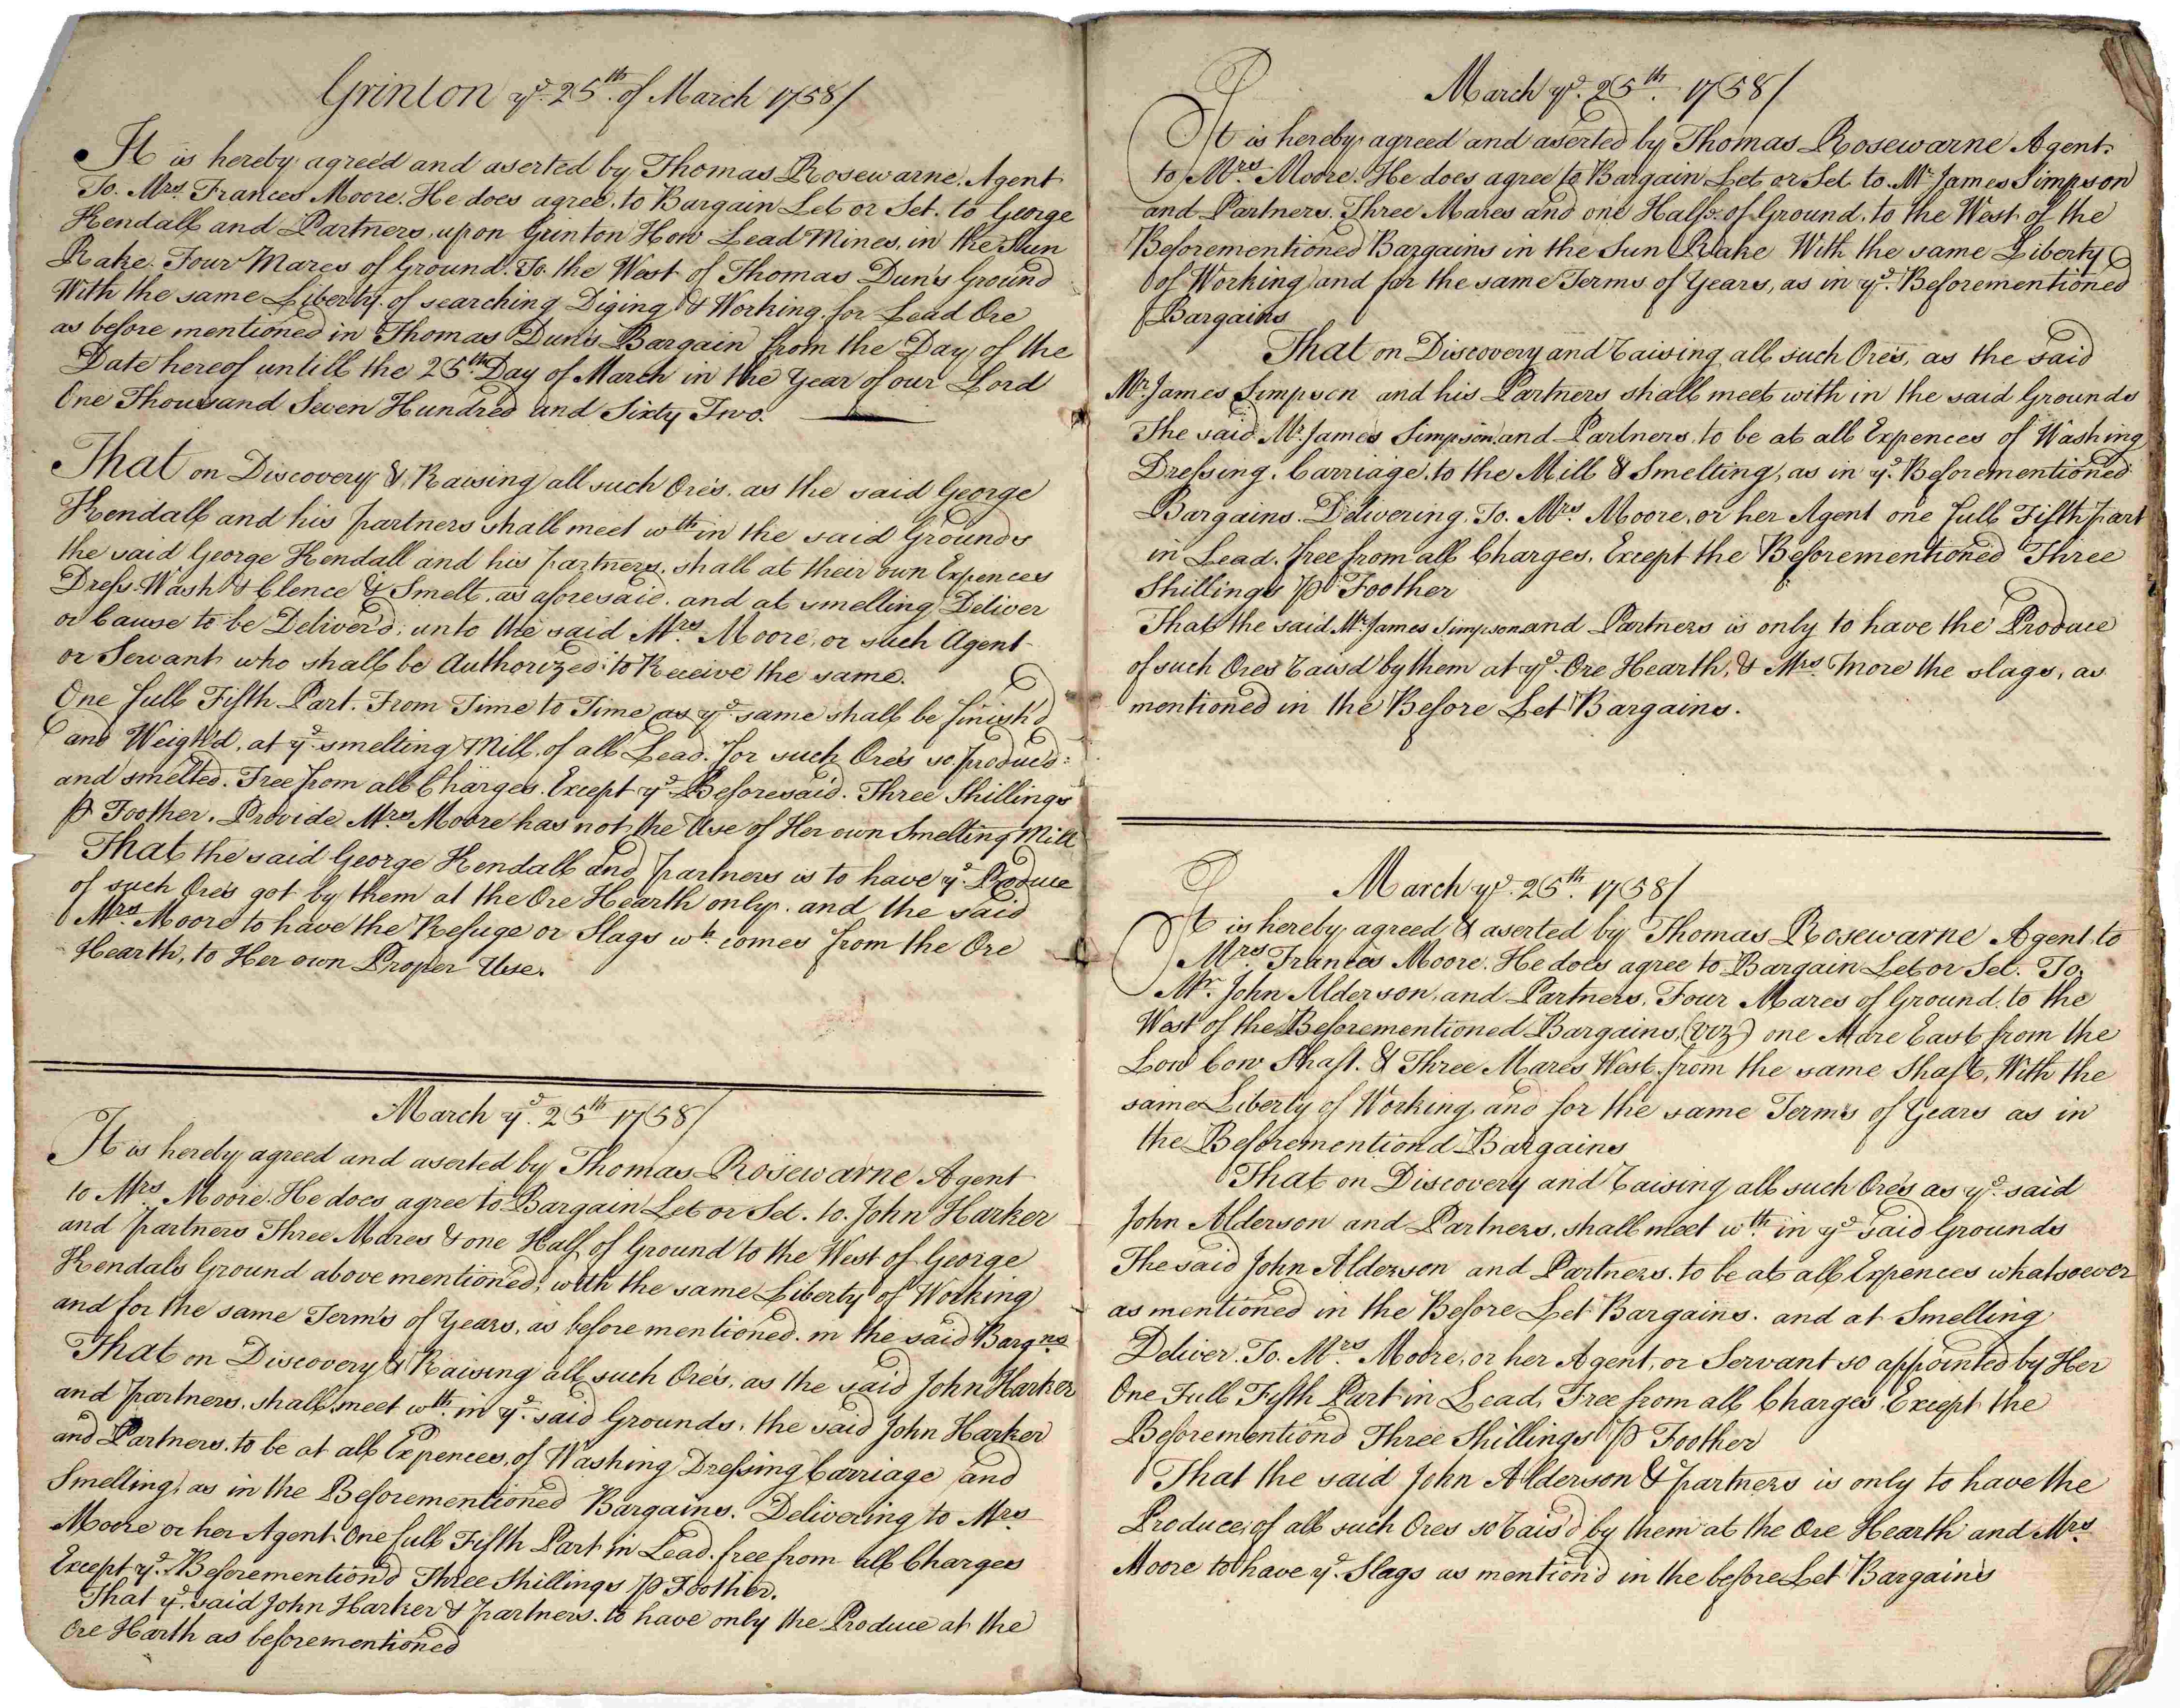 Grinton ye. 25th. of March 1758/
It is hereby agree'd and aserted by Thomas Rosewarne, Agent
To. Mrs. Frances Moore. He does agree, to Bargain Let or Set. to George
Kendall and Partners, upon Grinton How Lead Mines, in the Sun
Rake. Four Mares of Ground. To. the West of Thomas Dun's Ground
With the same Liberty. of searching Diging & Working. for Lead Ore
as before mentioned in Thomas Dun's Bargain from the Day of the
Date hereof untill the 25th. Day of March in the Year of our Lord
One Thousand Seven Hundred and Sixty Two.
That on Discovery & Raising all such Ore's, as the said George
Kendall and his partners shall meet wth in the said Grounds
the said George Kendall and his partners, shall at their own Expences
Dress Wash & Clence & Smelt. as aforesaid. and at smelting Deliver
or Cause to be Deliver'd, unto the said Mrs. Moore, or such Agent
or Servant who shall be Authorized to Receive the same.
One full Fifth Part. From Time to Time as ye. same shall be finish'd
and Weigh'd, at ye. smelting Mill, of all Lead. for such Ore's so produc'd
and smelted. Free from all Charges. Except ye. Beforesaid. Three Shillings
P Foother. Provide Mrs. Moore has not the Use of Her own Smelting Mill
That the said George Kendall and partners is to have ye. Produce
of such Ore's got by them at the Ore Hearth only. and the said
Mrs. Moore to have the Refuge or Slags wh. comes from the Ore
Hearth, to Her own Proper Use.
March ye. 25th 1758/
It is hereby agreed and aserted by Thomas Rosewarne Agent
to Mrs. Moore. He does agree to Bargain Let or Set. to. John Harker
and partners Three Mares & one Half of Ground to the West of George
Kendals Ground above mentioned; with the same Liberty of Working
and for the same Term's of Years, as before mentioned. in the said Bargns
That on Discovery & Raising all such Ore's, as the said John Harker
and partners, shall meet wth. in ye. said Grounds, the said John Harker
and Partners, to be at all Expences, of Washing Dressing Carriage and
Smelting, as in the Beforementioned Bargains. Delivering to Mrs.
Moore or her Agent One full Fifth Part in Lead. free from all Charges
Except ye. Beforemention'd Three Shillings P Foother.
That ye. said John Harker & partners. to have only the Produce at the
Ore Harth as beforementioned
March ye. 25th. 1758/
It is hereby agreed and aserted by Thomas Rosewarne Agent
to Mrs. Moore. He does agree to Bargain Let or Set to Mr. James Simpson
and Partners. Three Mares and one Half of Ground, to the West of the
Beforementioned Bargains in the Sun Rake With the same Liberty
of Working and for the same Terms of Years, as in ye. Beforementioned
Bargains
That on Discovery and Raising all such Ore's, as the said
Mr. James Simpson and his Partners shall meet with in the said Grounds
The said Mr. James Simpson and Partners, to be at all Expences of Washing
Dressing. Carriage, to the Mill & Smelting, as in ye. Beforementioned
Bargains. Delivering. To. Mrs. Moore, or her Agent one full Fifth part
in Lead, free from all Charges, Except the Beforementioned Three
Shillings P Foother
That the said Mr. James Simpson and Partners is only to have the Produce
of such Ores Rais'd by them at ye. Ore Hearth, & Mrs. More the slags, as
mentioned in the Before Let Bargains.
March ye. 25th. 1758/
It is hereby agreed & aserted by Thomas Rosewarne Agent to
Mrs. Frances Moore. He does agree to Bargain Let or Set. To.
Mr. John Alderson, and Partners, Four Mares of Ground, to the
West of the Beforementioned Bargains, (viz) one Mare East from the
Low Cow Shaft. & Three Mares West from the same Shaft, With the
same Liberty of Working and for the same Terms of Years as in
the Beforementiond Bargains
That on Discovery and Raising all such Ore's as ye. said
John Alderson and Partners, shall meet wth. in ye said Grounds
The said John Alderson and Partners, to be at all Expences whatsoever
as mentioned in the Before Let Bargains. and at Smelting
Deliver. To. Mrs. Moore, or her Agent, or Servant so appointed by Her
One Full Fifth Part in Lead, Free from all Charges, Except the
Beforementiond Three Shillings P Foother
That the said John Alderson & partners is only to have the
Produce, of all such Ores so Rais'd by them at the Ore Hearth and Mrs.
Moore to have ye. Slags as mention'd in the before Let Bargains